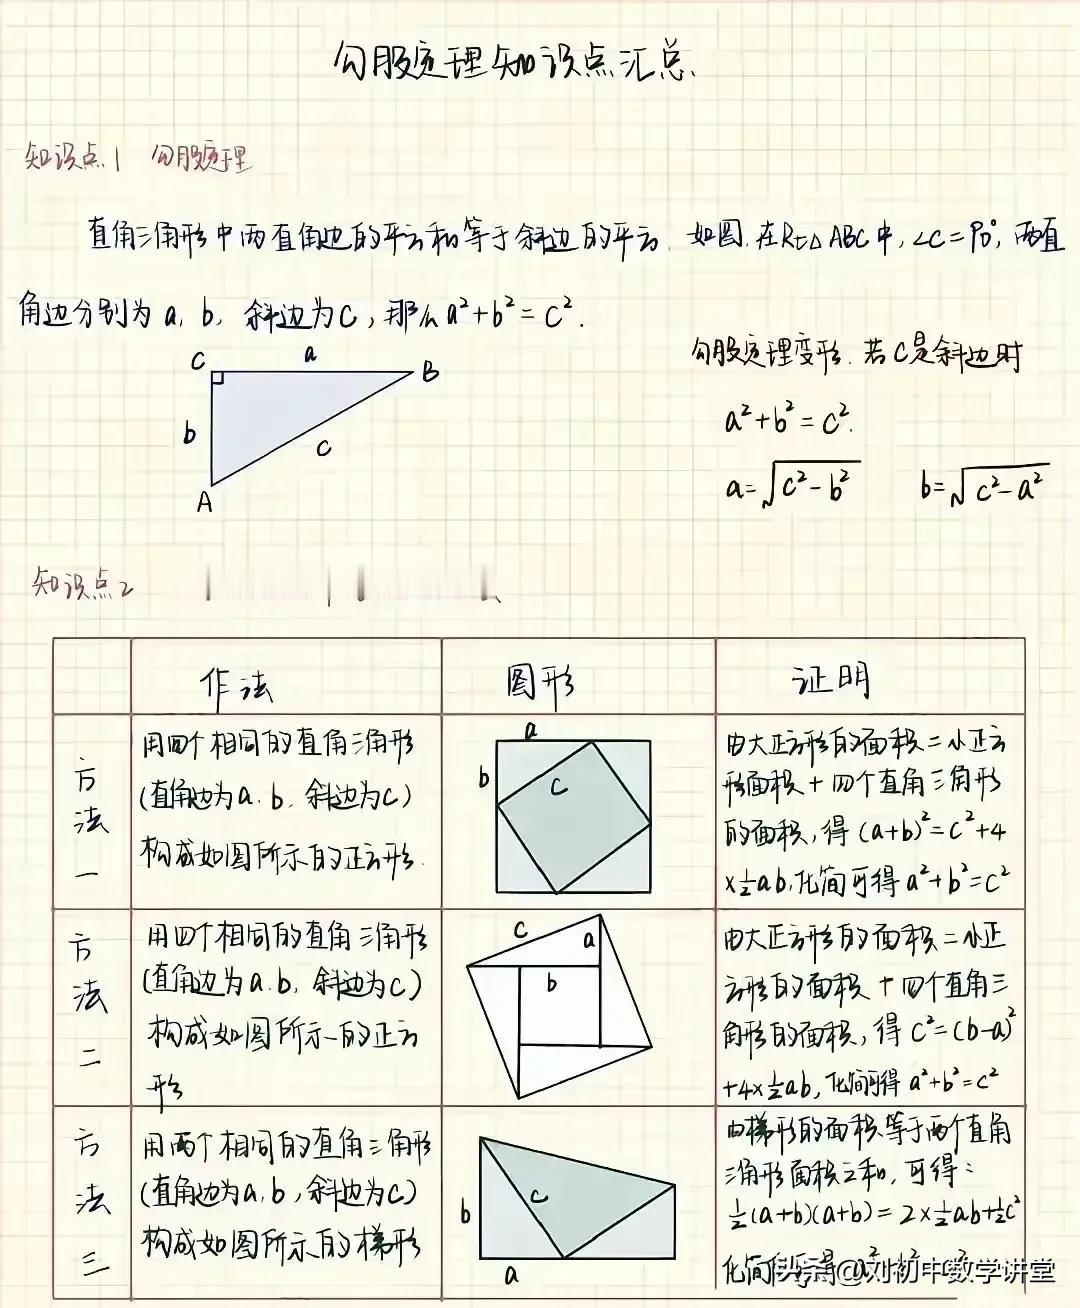 勾股定理知识点汇总
知识点1 勾股定理
直角三角形中两直角边的平方和等于斜边的平方. 如图,在Rt△ABC中,∠C=90°,两直
角边分别为a, b, 斜边为c,那么a²+b²=c².
C a B
b
c
A
勾股定理变形. 若c是斜边时
a²+b²=c².
a=√c²-b² b=√c²-a²
知识点2
作法 图形 证明
方法一
用四个相同的直角三角形
(直角边为a.b, 斜边为c)
构成如图所示的正方形.
a
b
c
由大正方形的面积=小正方
形面积+四个直角三角形
的面积,得(a+b)²=c²+4
×½ab,化简可得a²+b²=c²
方法二
用四个相同的直角三角形
(直角边为a.b, 斜边为c)
构成如图所示的正方
形
c
a
b
由大正方形的面积=小正
方形的面积+四个直角三
角形的面积,得c²=(b-a)²
+4×½ab,化简可得a²+b²=c²
方法三
用两个相同的直角三角形
(直角边为a,b,斜边为c)
构成如图所示的梯形
b
c
a
由梯形的面积等于两个直角
三角形面积之和,可得:
½(a+b)(a+b)=2×½ab+½c²
化简
头条@刘初中数学讲堂